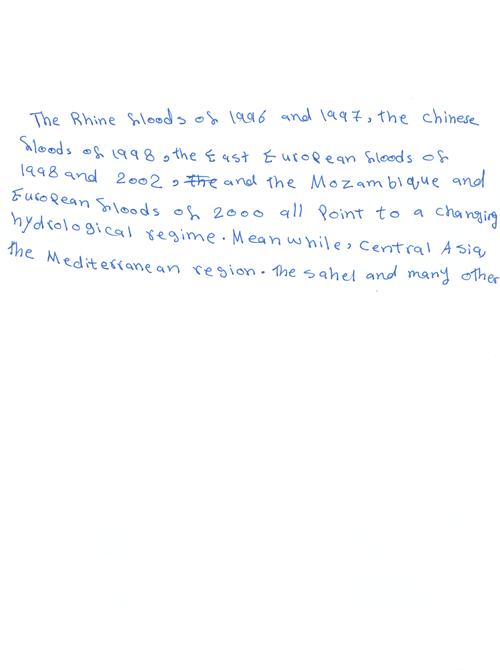 The Rhine floods of 1996 and 1997, the chinese
floods of 1998, the East European floods of
1998 and 2002, ~~the~~ and the Mozambique and
European floods of 2000 all point to a changing
hydrological regime. Meanwhile, central Asia,
the Mediterranean region. the sahel and many other